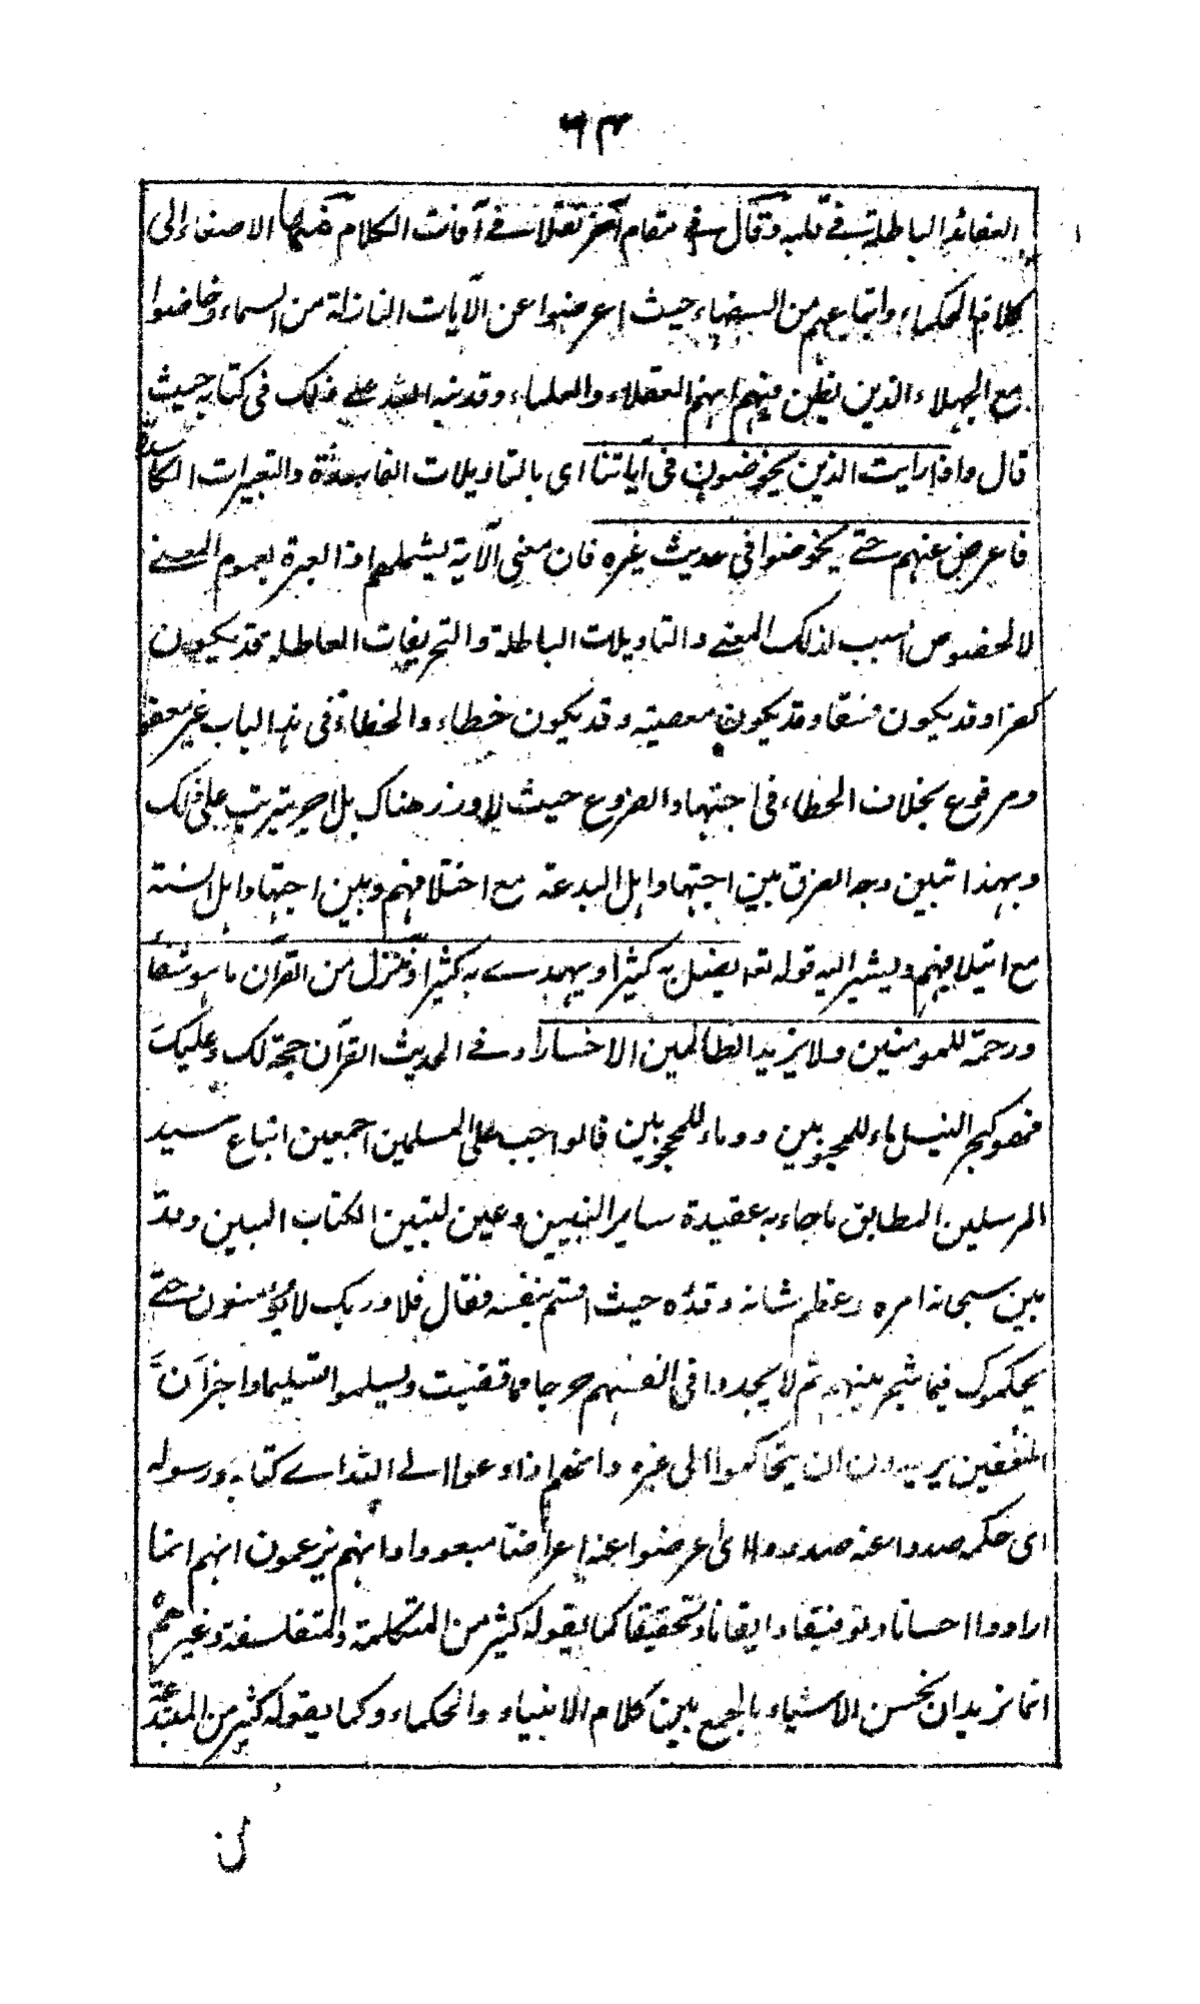 ٦٣
العقائد الباطلة في قلبه وقال في مقام آخر نقلا في آفات الكلام منها الاصغاء إلى
كلام الحكماء واتباعهم من السفهاء حيث اعرضوا عن الآيات النازلة من السماء وخاضوا
مع الجهلاء الذين يظن فيهم انهم العقلاء والعلماء وقد نبه الله على ذلك في كتابه حيث
قال واذا رايت الذين يخوضون في آياتنا اى بالتاويلات الفاسدة والتعبيرات الكاسدة
فاعرض عنهم حتى يخوضوا في حديث غيره فان معنى الآية يشملهم اذ العبرة بعموم المعنى
لا لخصوص السبب لذلك المعنى والتاويلات الباطلة والتحريفات العاطلة قد يكون
كفرا وقد يكون فسقا وقد يكون معصية وقد يكون خطاء والخطاء في هذا الباب غير معفو
ومرفوع بخلاف الخطاء في اجتهاد الفروع حيث لا وزر هناك بل اجر يترتب على ذلك
وبهذا تبين وجه الفرق بين اجتهاد اهل البدعة مع اختلافهم وبين اجتهاد اهل السنة
مع ائتلافهم ويشير اليه قوله تعه يضل به كثيرا ويهدى به كثيرا وننزل من القرآن ما هو شفاء
ورحمة للمومنين ولا يزيد الظالمين الا خسارا وفى الحديث القرآن حجة لك وعليك
فهو كبحر النيل ماء للمحبوبين ودماء للمحجوبين فالواجب على المسلمين اجمعين اتباع سيد
المرسلين المطابق ما جاء به عقيدة ساير النبيين وعين لتبين الكتاب المبين وقد
بين سبحانه امره وعظم شانه وقدره حيث اقسم بنفسه فقال فلا وربك لا يؤمنون حتى
يحكموك فيما شجر بينهم ثم لا يجدوا في انفسهم حرجا مما قضيت ويسلموا تسليما واخبر ان
المنفقين يريدون ان يتحاكموا الى غيره وانهم اذا دعوا الى الله اى كتابه ورسوله
اى حكمه صدوا عنه صدودا اى اعرضوا عنه اعراضا مبعودا وانهم يزعمون انهم انما
ارادوا احسانا وتوفيقا وايقانا وتحقيقا كما يقوله كثير من المتكلمة والمتفلسفة وغيرهم
انما نريد ان نحسن الاشياء بالجمع بين كلام الانبياء والحكماء وكما يقوله كثير من المبتدعة